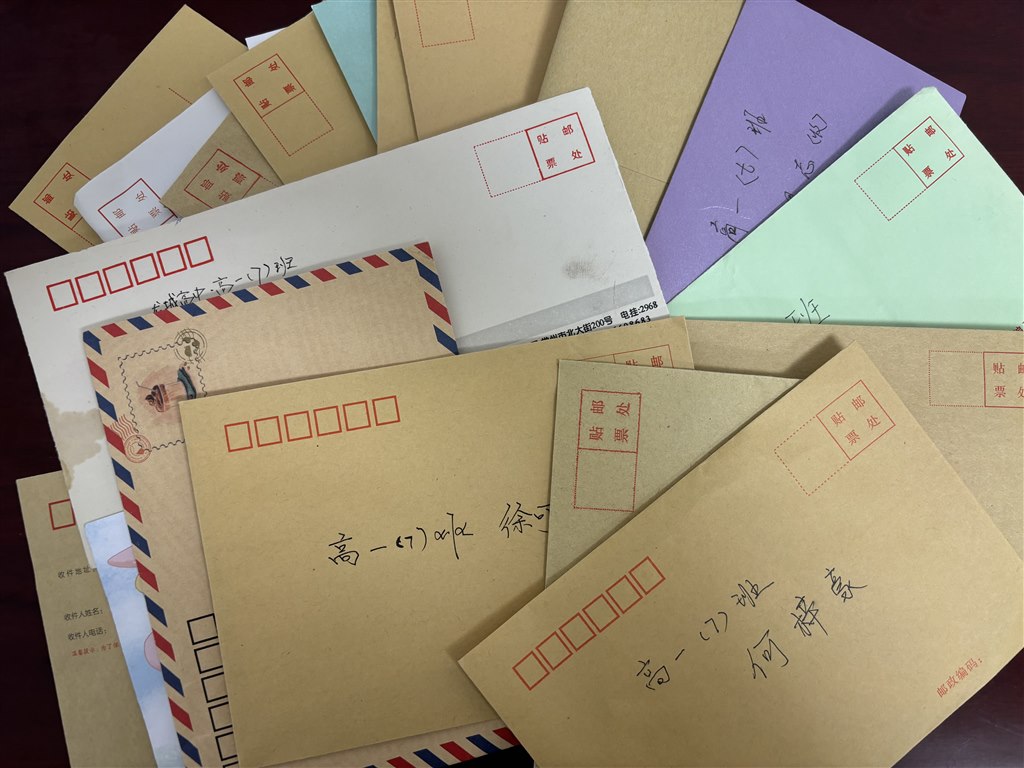 贴邮
票处
贴邮
票处
贴邮
票处
贴邮
票处
高一(七)班
贴邮
票处
贴邮
票处
龙城高中·高一(7)班
常州市北大街200号 电挂:2968
班
贴邮
票处
贴邮
票处
贴邮
票处
高一(7)班 徐
高一(7)班
何梓豪
邮政编码：
收件地址:
收件人姓名：
收件人电话：
温馨提示：为了保